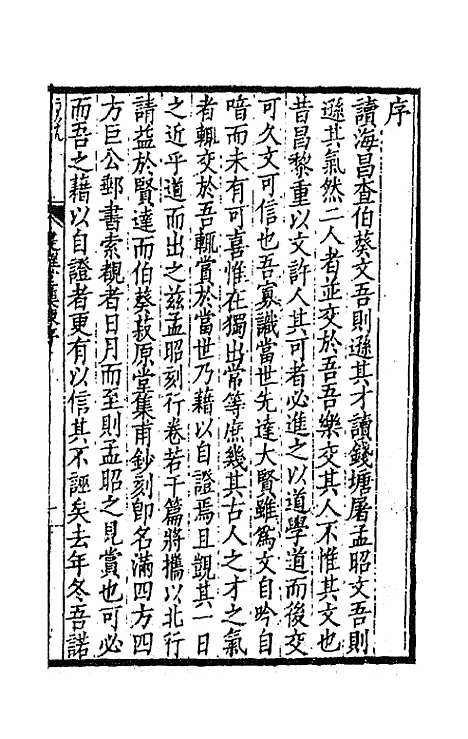 序
讀海昌查伯葵文吾則遜其才讀錢塘屠孟昭文吾則
遜其氣然二人者並交於吾吾樂交其人不惟其文也
昔昌黎重以文許人其可者必進之以道學道而後交
可久文可信也吾寡識當世先達大賢雖爲文自吟自
喑而未有可喜惟在獨出常等庶幾其古人之才之氣
者輒交於吾輒賞於當世乃藉以自證焉且觀其一日
之近乎道而出之茲孟昭刻行卷若干篇將攜以北行
請益於賢達而伯葵菽原堂集甫鈔刻卽名滿四方四
方巨公郵書索觀者日月而至則孟昭之見賞也可必
而吾之藉以自證者更有以信其不誣矣去年冬吾諾